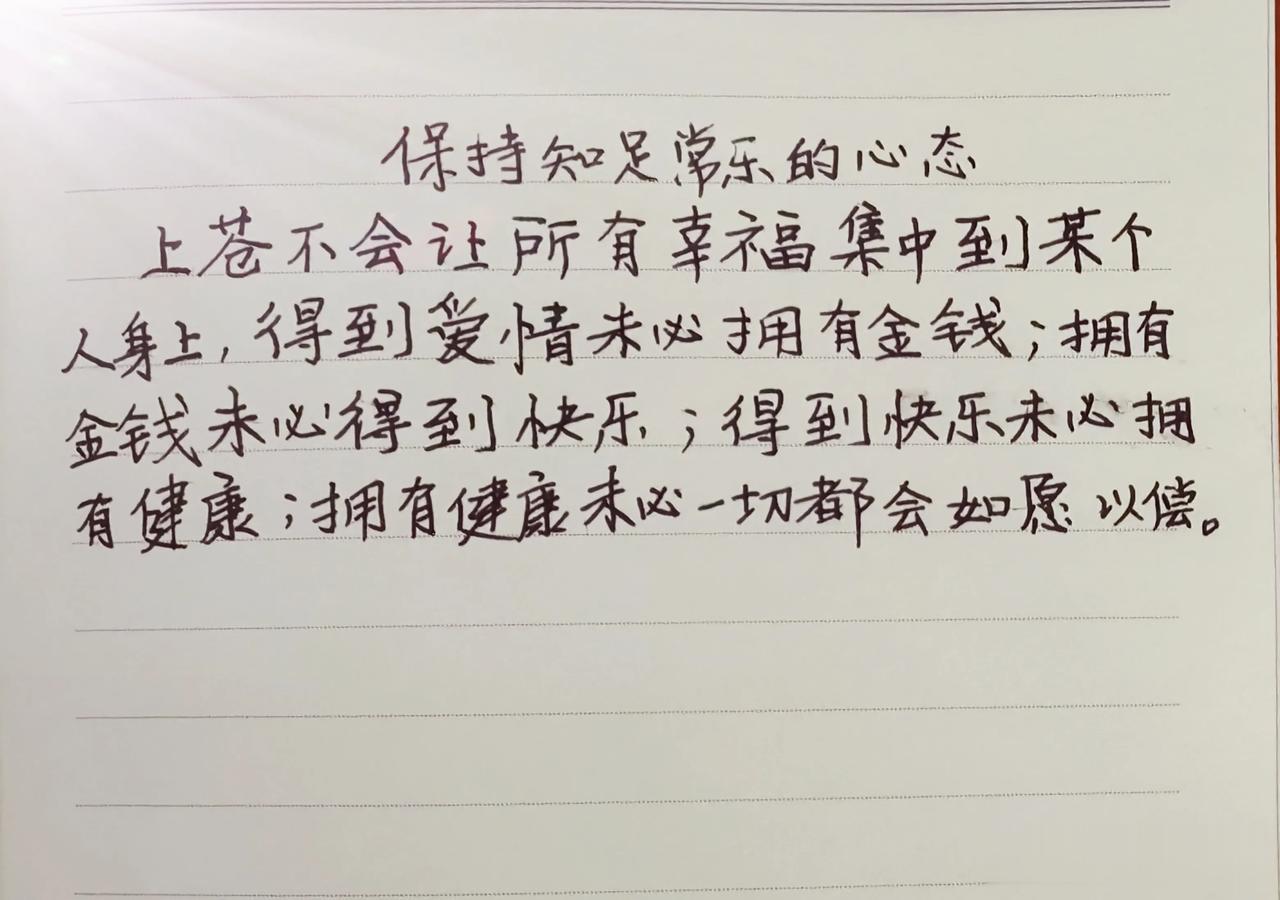 保持知足常乐的心态
上苍不会让所有幸福集中到某个
人身上，得到爱情未必拥有金钱；拥有
金钱未必得到快乐；得到快乐未必拥
有健康；拥有健康未必一切都会如愿以偿。